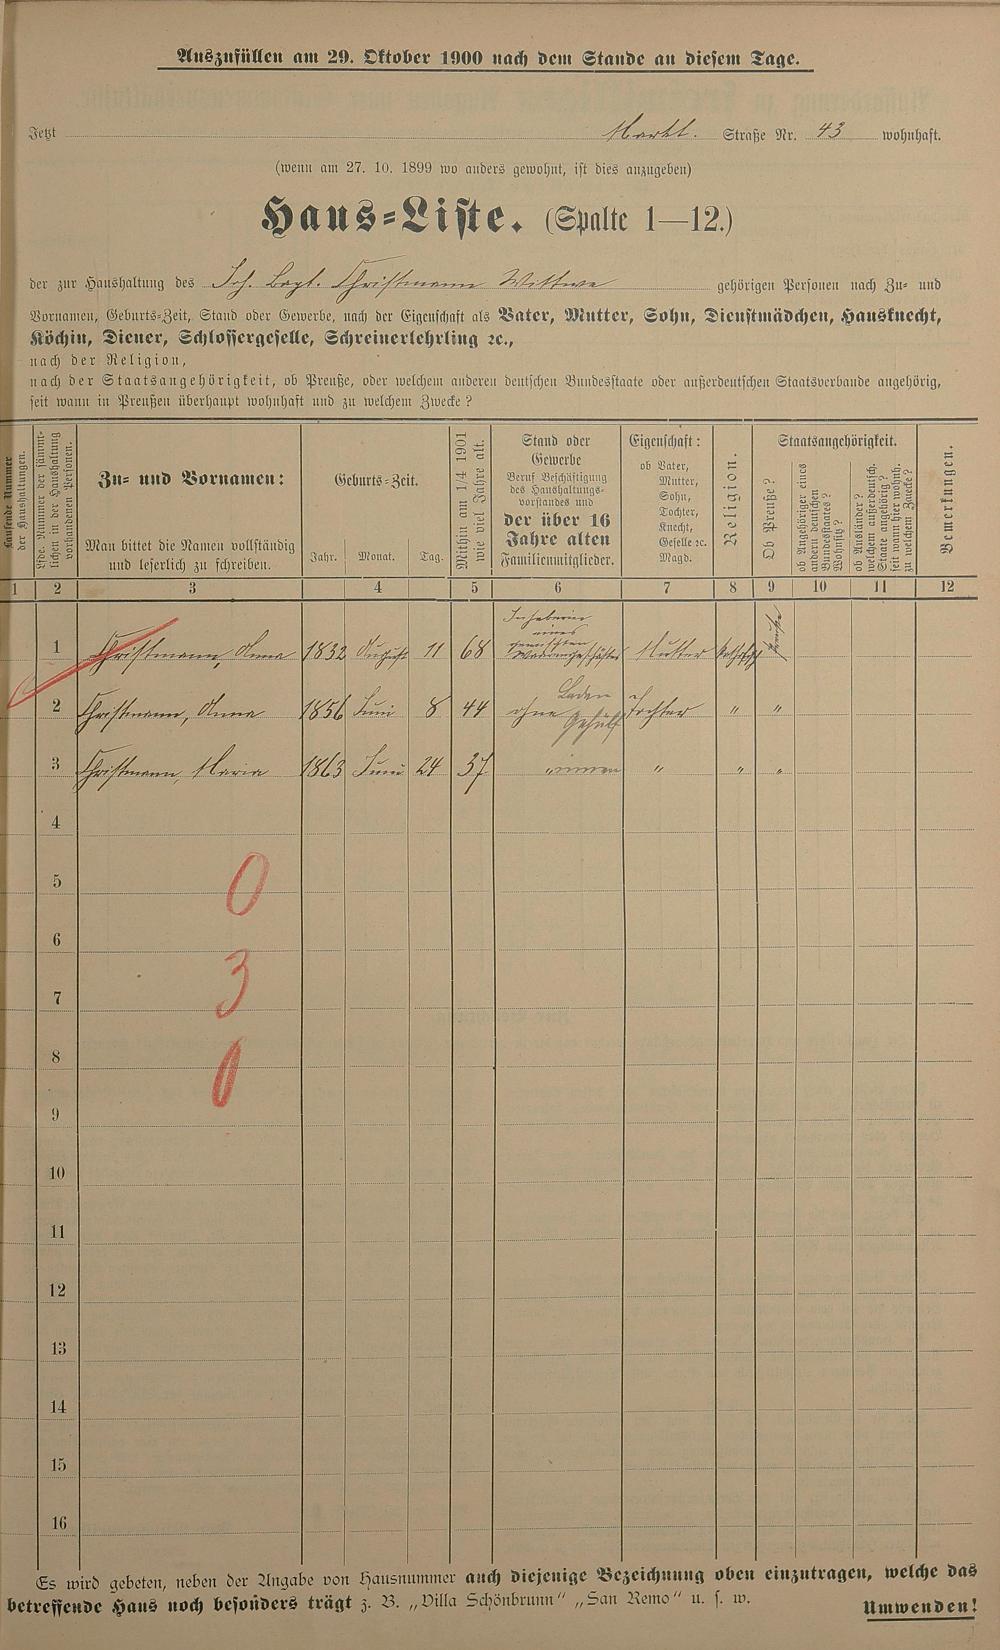 Auszufüllen am 29. Oktober 1900 nach dem Stande an diesem Tage.
Jetzt Markt. Straße Nr. 43 wohnhaft.
(wenn am 27. 10. 1899 wo anders gewohnt, ist dies anzugeben)
Haus-Liste. (Spalte 1—12.)
der zur Haushaltung des Joh. Bapt. Christmann Wittwe gehörigen Personen nach Zu- und
Vornamen, Geburts-Zeit, Stand oder Gewerbe, nach der Eigenschaft als Vater, Mutter, Sohn, Dienstmädchen, Hausknecht,
Köchin, Diener, Schlossergeselle, Schreinerlehrling ꝛc.,
nach der Religion,
nach der Staatsangehörigkeit, ob Preuße, oder welchem anderen deutschen Bundesstaate oder außerdeutschen Staatsverbande angehörig,
seit wann in Preußen überhaupt wohnhaft und zu welchem Zwecke?
Laufende Nummer
der Haushaltungen.
Lfde. Nummer der sämmt-
lichen in der Haushaltung
vorhandenen Personen.
Zu- und Vornamen:
Man bittet die Namen vollständig
und leserlich zu schreiben.
Geburts-Zeit.
Jahr. Monat. Tag.
Mithin am 1/4 1901
wie viel Jahre alt.
Stand oder
Gewerbe
Beruf Beschäftigung
des Haushaltungs-
vorstandes und
der über 16
Jahre alten
Familienmitglieder.
Eigenschaft:
ob Vater,
Mutter,
Sohn,
Tochter,
Knecht,
Geselle ꝛc.
Magd.
Religion.
Staatsangehörigkeit.
Ob Preuße?
ob Angehöriger eines
andern deutschen
Bundesstaates?
Wohnsitz?
ob Ausländer?
welchem außerdeutsch.
Staate angehörig?
seit wann hier wohnh.
zu welchem Zwecke?
Bemerkungen.
1 2 3 4 5 6 7 8 9 10 11 12
1 Christmann, Anna 1832 August 11 68 Inhaberin eines gemischten Waarengeschäftes Mutter kathol. Preuße
2 Christmann, Anna 1856 Juni 8 44 ohne Laden Gehülf Tochter " "
3 Christmann, Maria 1863 Juni 24 37 "innen " " "
4
5
6
7
8
9
10
11
12
13
14
15
16
0
3
0
Es wird gebeten, neben der Angabe von Hausnummer auch diejenige Bezeichnung oben einzutragen, welche das
betreffende Haus noch besonders trägt z. B. „Villa Schönbrunn" „San Remo" u. s. w.
Umwenden!